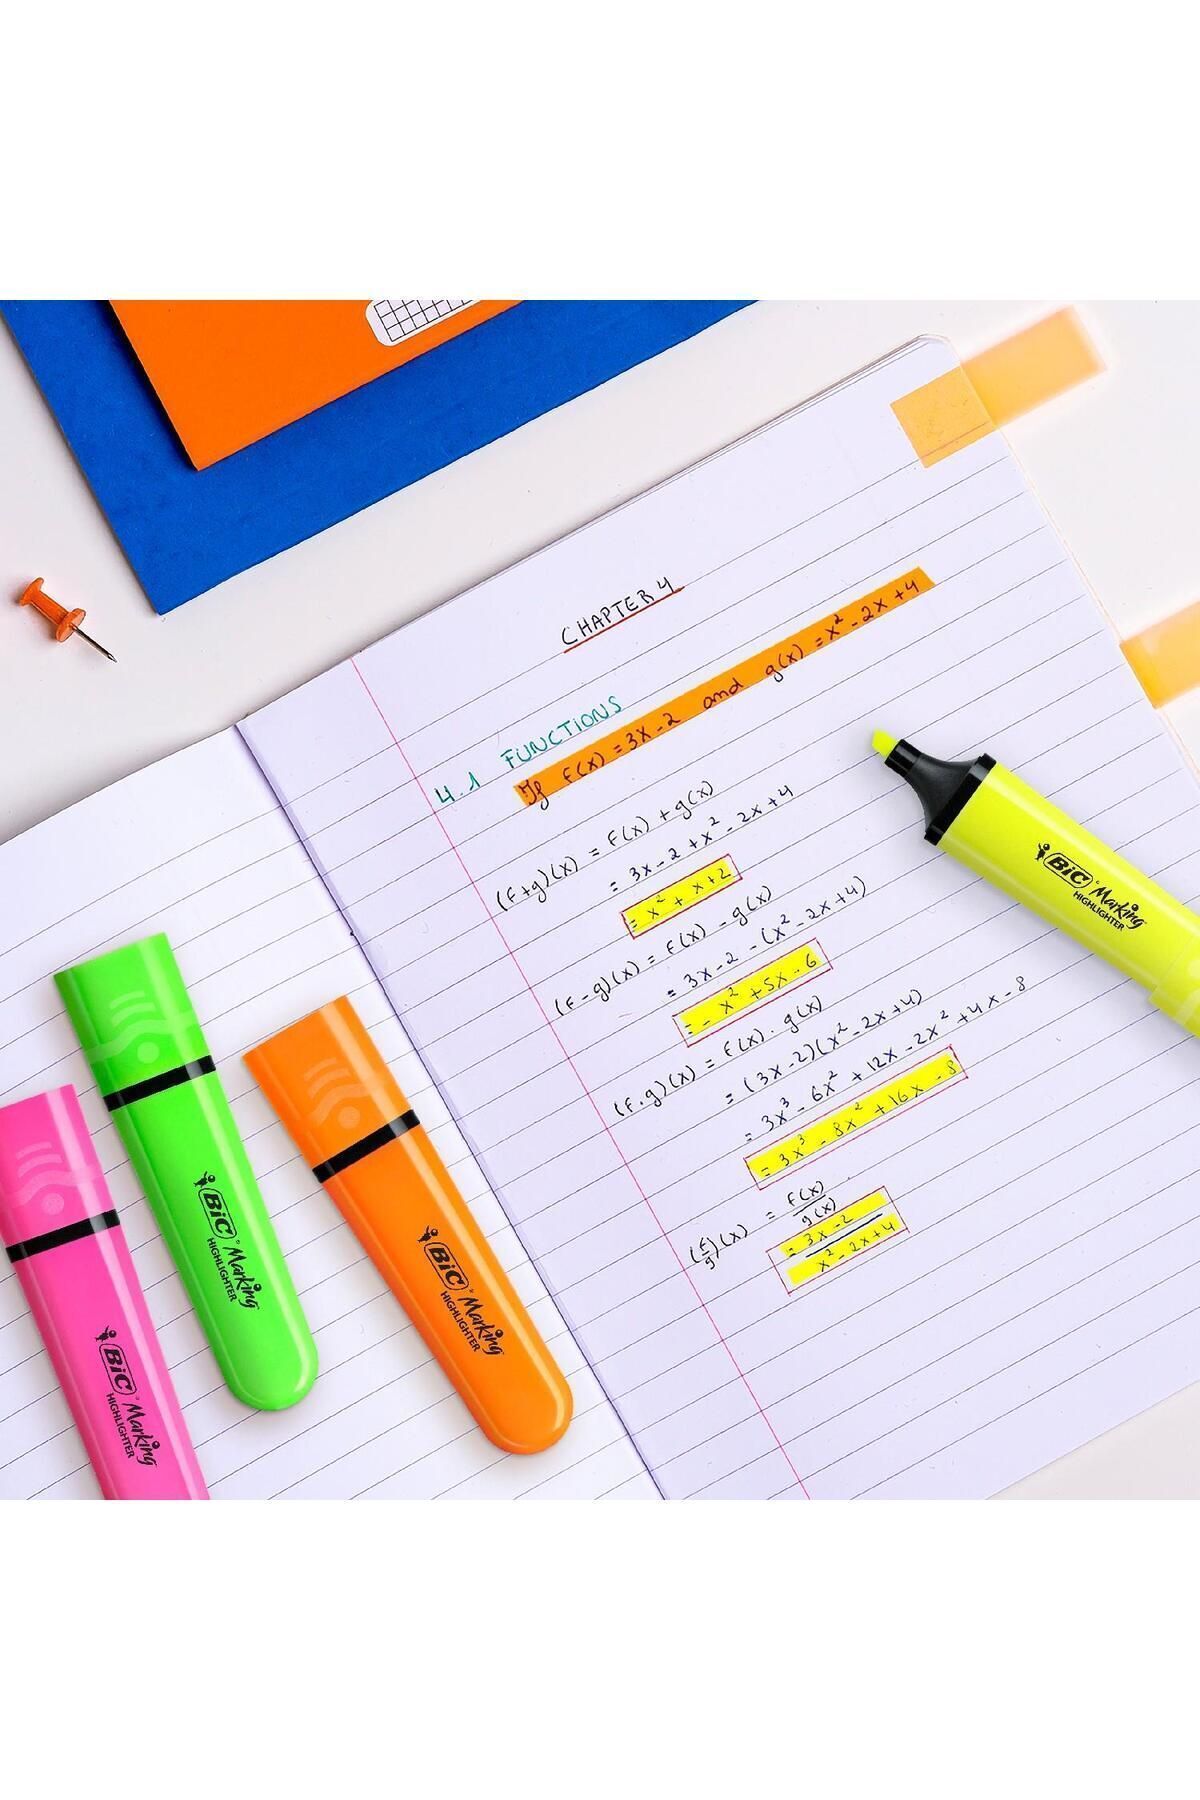 CHAPTER 4
4.1 FUNCTIONS
If f(x) = 3x - 2 and g(x) = x² - 2x + 4
(f+g)(x) = f(x) + g(x)
= 3x - 2 + x² - 2x + 4
= x² + x + 2
(f-g)(x) = f(x) - g(x)
= 3x - 2 - (x² - 2x + 4)
= - x² + 5x - 6
(f.g)(x) = f(x) . g(x)
= (3x - 2)(x² - 2x + 4)
= 3x³ - 6x² + 12x - 2x² + 4x - 8
= 3x³ - 8x² + 16x - 8
(f/g)(x) = f(x)/g(x)
= 3x - 2/x² - 2x + 4
BiC® Marking
HIGHLIGHTER
BiC® Marking
HIGHLIGHTER
BiC® Marking
HIGHLIGHTER
BiC® Marking
HIGHLIGHTER